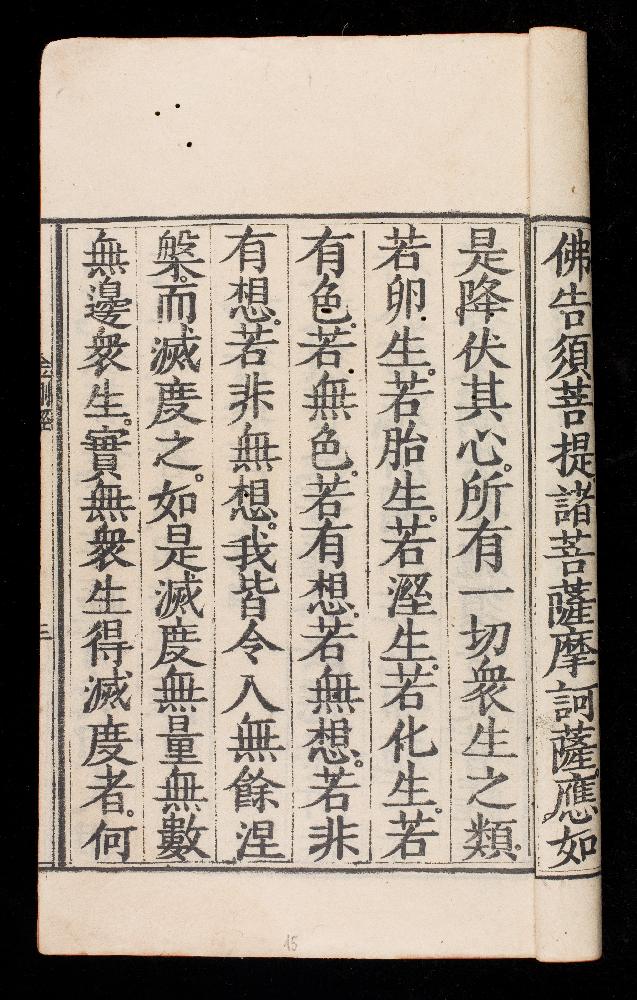 佛告須菩提諸菩薩摩訶薩。應如
是降伏其心。所有一切衆生之類。
若卵生。若胎生。若溼生。若化生。若
有色。若無色。若有想。若無想。若非
有想。若非無想。我皆令入無餘涅
槃。而滅度之。如是滅度無量無數
無邊衆生。實無衆生得滅度者。何
金剛經
三
15